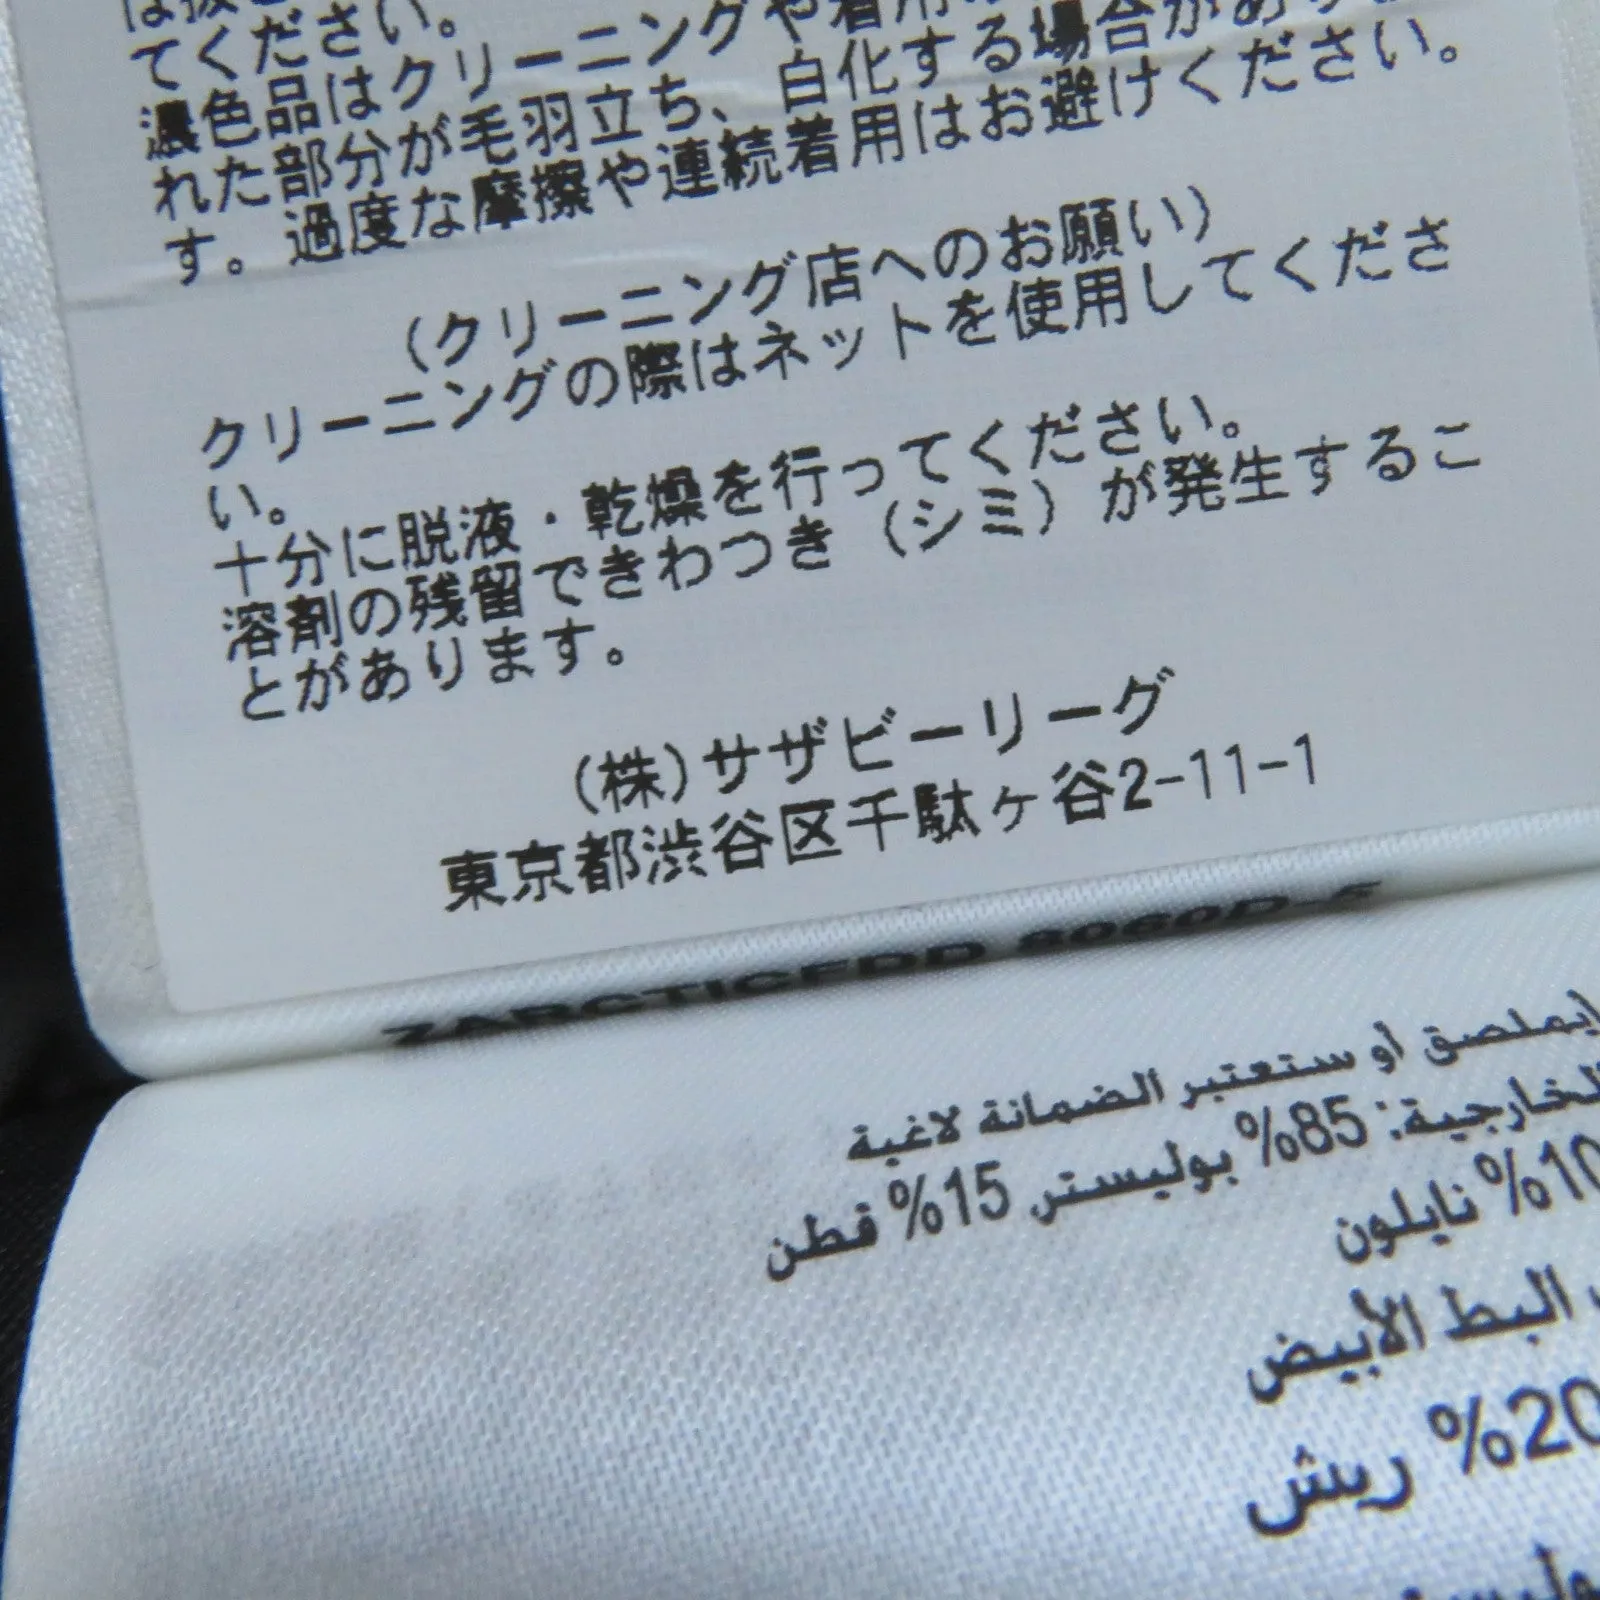 てください。
濃色品はクリーニングや着用
れた部分が毛羽立ち、白化する場合があ
す。過度な摩擦や連続着用はお避けください。
(クリーニング店へのお願い)
クリーニングの際はネットを使用してくださ
い。
十分に脱液・乾燥を行ってください。
溶剤の残留できわつき(シミ)が発生するこ
とがあります。
(株)サザビーリーグ
東京都渋谷区千駄ヶ谷2-11-1
أو ستعتبر الضمانة لاغية
الخارجية: 85% بوليستر, 15% قطن
نايلون
البط الأبيض
ريش